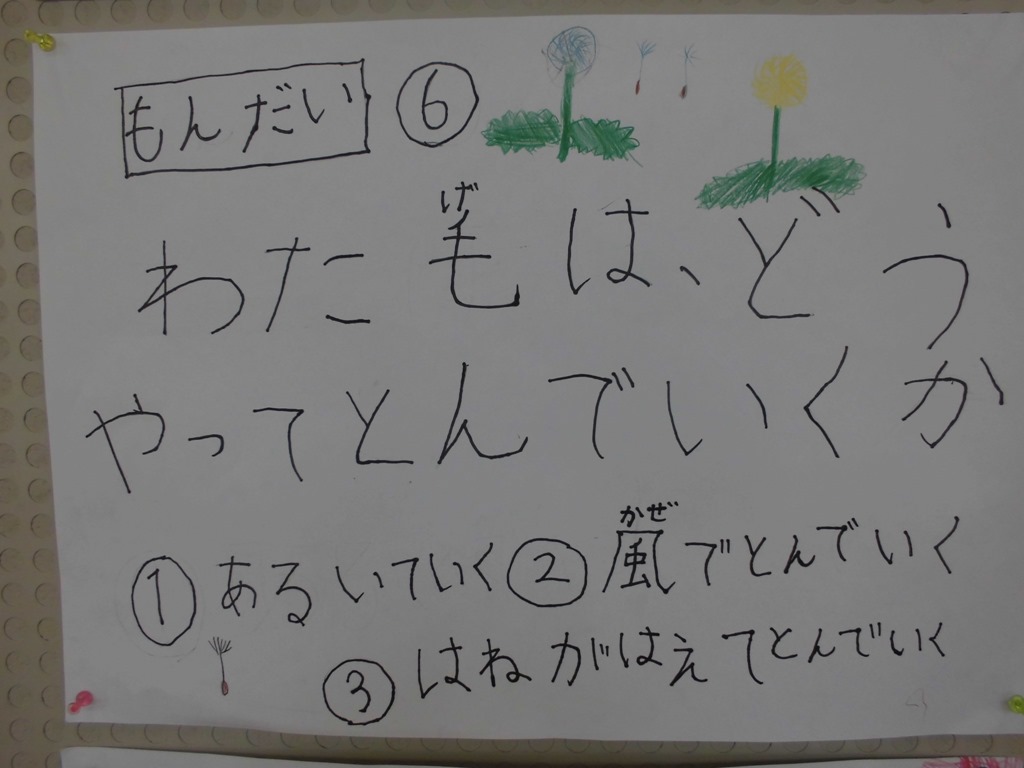 もんだい ⑥
わた毛げは、どう
やってとんでいくか
①あるいていく②風かぜでとんでいく
③はねがはえてとんでいく